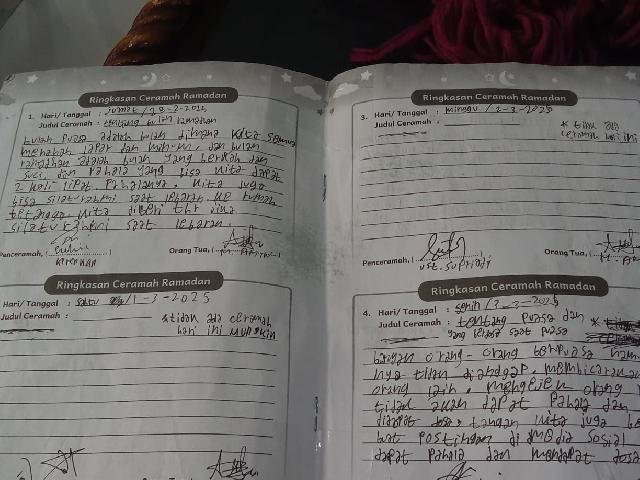 Ringkasan Ceramah Ramadan
1. Hari/ Tanggal : Jumat / 28-2-2025
Judul Ceramah : tentang bulan ramadhan
bulan Puasa adalah bulan dimana kita semua
menahan lapar dan minum, dan bulan
ramadhan adalah bulan yang berkah dan
suci, dan Pahala yang bisa kita dapat
2 kali lipat Pahalanya. kita juga
bisa silaturahmi saat lebaran ke rumah
tetangga. kita diberi thr jika
silaturahmi saat lebaran.
Penceramah, (
Orang Tua, (
Ringkasan Ceramah Ramadan
Hari/ Tanggal : Sabtu / 1-3-2025
Judul Ceramah :
*tidak ada ceramah
hari ini mungkin
Ringkasan Ceramah Ramadan
3. Hari/ Tanggal : Minggu / 2-3-2025
Judul Ceramah :
* tidak ada
ceramah hari ini
Penceramah, (
ust. Supriadi
Orang Tua, (
Ringkasan Ceramah Ramadan
4. Hari/ Tanggal : Senin / 3-3-2025
Judul Ceramah : tentang Puasa dan
yang saat Puasa
banyak orang-orang berpuasa
nya tidak dianggap. membicarakan
orang lain. mengejek orang
tidak akan dapat Pahala dan
dosa. tangan kita juga
buat Postingan di media sosial
dapat Pahala dan mendapat dosa